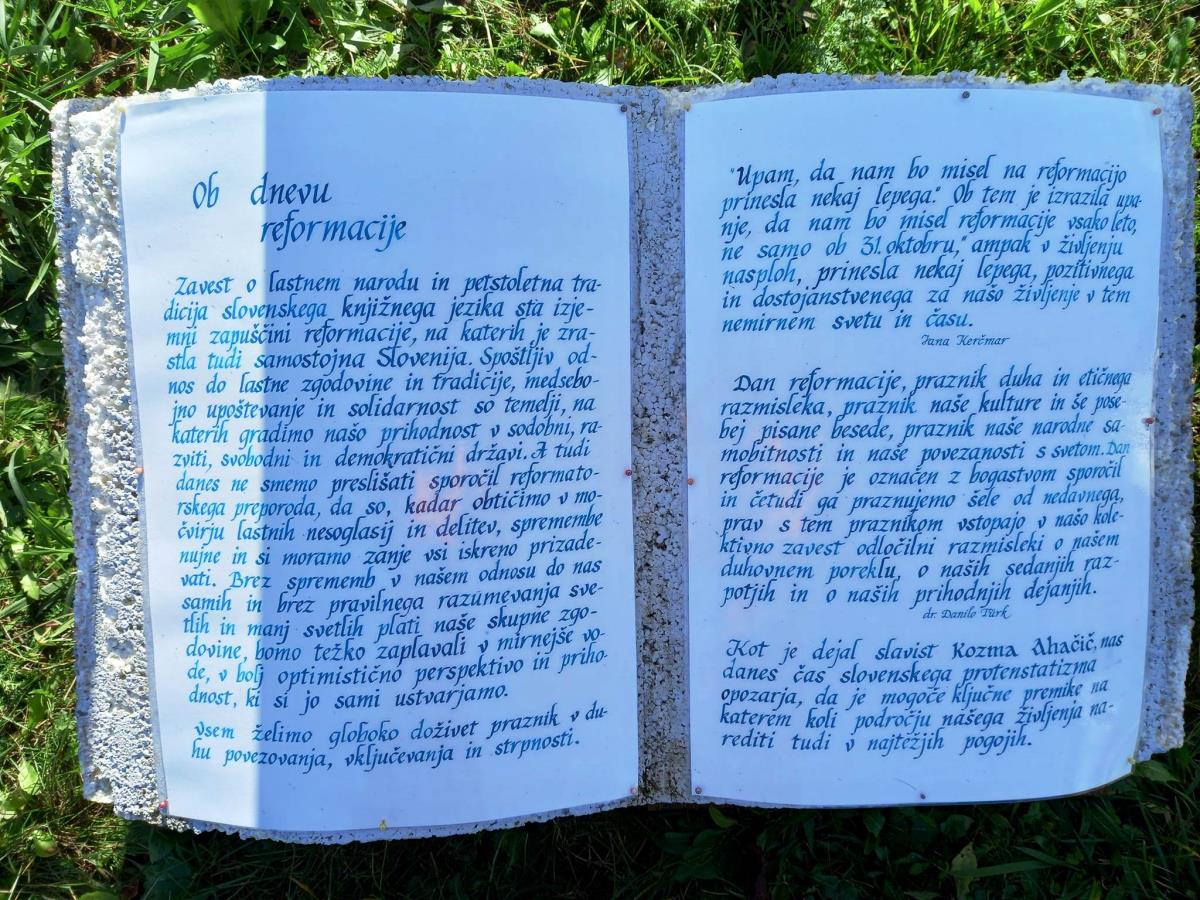 Ob dnevu
reformacije
Zavest o lastnem narodu in petstoletna tra-
dicija slovenskega knjižnega jezika sta izje-
mni zapuščini reformacije, na katerih je zra-
stla tudi samostojna Slovenija. Spoštljiv od-
nos do lastne zgodovine in tradicije, medsebo-
jno upoštevanje in solidarnost so temelji, na
katerih gradimo našo prihodnost v sodobni, ra-
zviti, svobodni in demokratični državi. A tudi
danes ne smemo preslišati sporočil reformato-
rskega preporoda, da so, kadar obtičimo v mo-
čvirju lastnih nesoglasij in delitev, spremembe
nujne in si moramo zanje vsi iskreno prizade-
vati. Brez sprememb v našem odnosu do nas
samih in brez pravilnega razumevanja sve-
tlih in manj svetlih plati naše skupne zgo-
dovine, bomo težko zaplavali v mirnejše vo-
de, v bolj optimistično perspektivo in priho-
dnost, ki si jo sami ustvarjamo.
Vsem želimo globoko doživet praznik v du-
hu povezovanja, vključevanja in strpnosti.
"Upam, da nam bo misel na reformacijo
prinesla nekaj lepega." Ob tem je izrazila upa-
nje, da nam bo misel reformacije vsako leto,
ne samo ob 31. oktobru," ampak v življenju
nasploh, prinesla nekaj lepega, pozitivnega
in dostojanstvenega za našo življenje v tem
nemirnem svetu in času.
Jana Kerčmar
Dan reformacije, praznik duha in etičnega
razmisleka, praznik naše kulture in še pose-
bej pisane besede, praznik naše narodne sa-
mobitnosti in naše povezanosti s svetom. Dan
reformacije je označen z bogastvom sporočil
in četudi ga praznujemo šele od nedavnega,
prav s tem praznikom vstopajo v našo kole-
ktivno zavest odločilni razmisleki o našem
duhovnem poreklu, o naših sedanjih raz-
potjih in o naših prihodnjih dejanjih.
dr. Danilo Türk
Kot je dejal slavist Kozma Ahačič, nas
danes čas slovenskega protenstatizma
opozarja, da je mogoče ključne premike na
katerem koli področju našega življenja na-
rediti tudi v najtežjih pogojih.